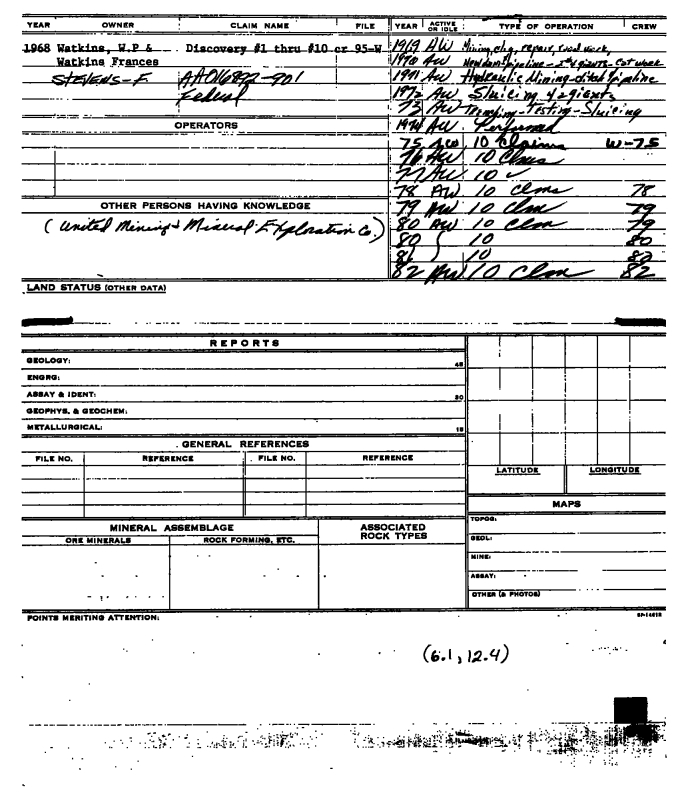 YEAR OWNER CLAIM NAME FILE YEAR ACTIVE OR IDLE TYPE OF OPERATION CREW
1968 Watkins, W.P & Discovery #1 thru #10 cr 95-W
Watkins Frances
STEVENS-F. AA016892-901
Federal
1969 AW Mining, repair, road work,
1970 AW New dam pipeline - 2 giants - Cat work
1971 AW Hydraulic Mining-ditch pipeline
1972 AW Sluicing 4 2 giants
73 AW Testing-Sluicing
1974 AW Performed
75 AW 10 Claims W-75
76 AW 10 Clms
77 AW 10 ✓
78 AW 10 Clms 78
79 AW 10 Clm 79
80 AW 10 Clm 79
80 10 80
81 10 82
82 AW 10 Clm 82
OPERATORS
OTHER PERSONS HAVING KNOWLEDGE
(United Mining & Mineral Exploration Co.)
LAND STATUS (OTHER DATA)
REPORTS
GEOLOGY: 45
ENGRG:
ASSAY & IDENT: 30
GEOPHYS. & GEOCHEM:
METALLURGICAL: 15
GENERAL REFERENCES
FILE NO. REFERENCE FILE NO. REFERENCE
LATITUDE LONGITUDE
MAPS
TOPOG:
GEOL:
MINE:
ASSAY:
OTHER (& PHOTOS)
MINERAL ASSEMBLAGE
ORE MINERALS ROCK FORMING, ETC.
ASSOCIATED ROCK TYPES
POINTS MERITING ATTENTION:
(6.1, 12.4)